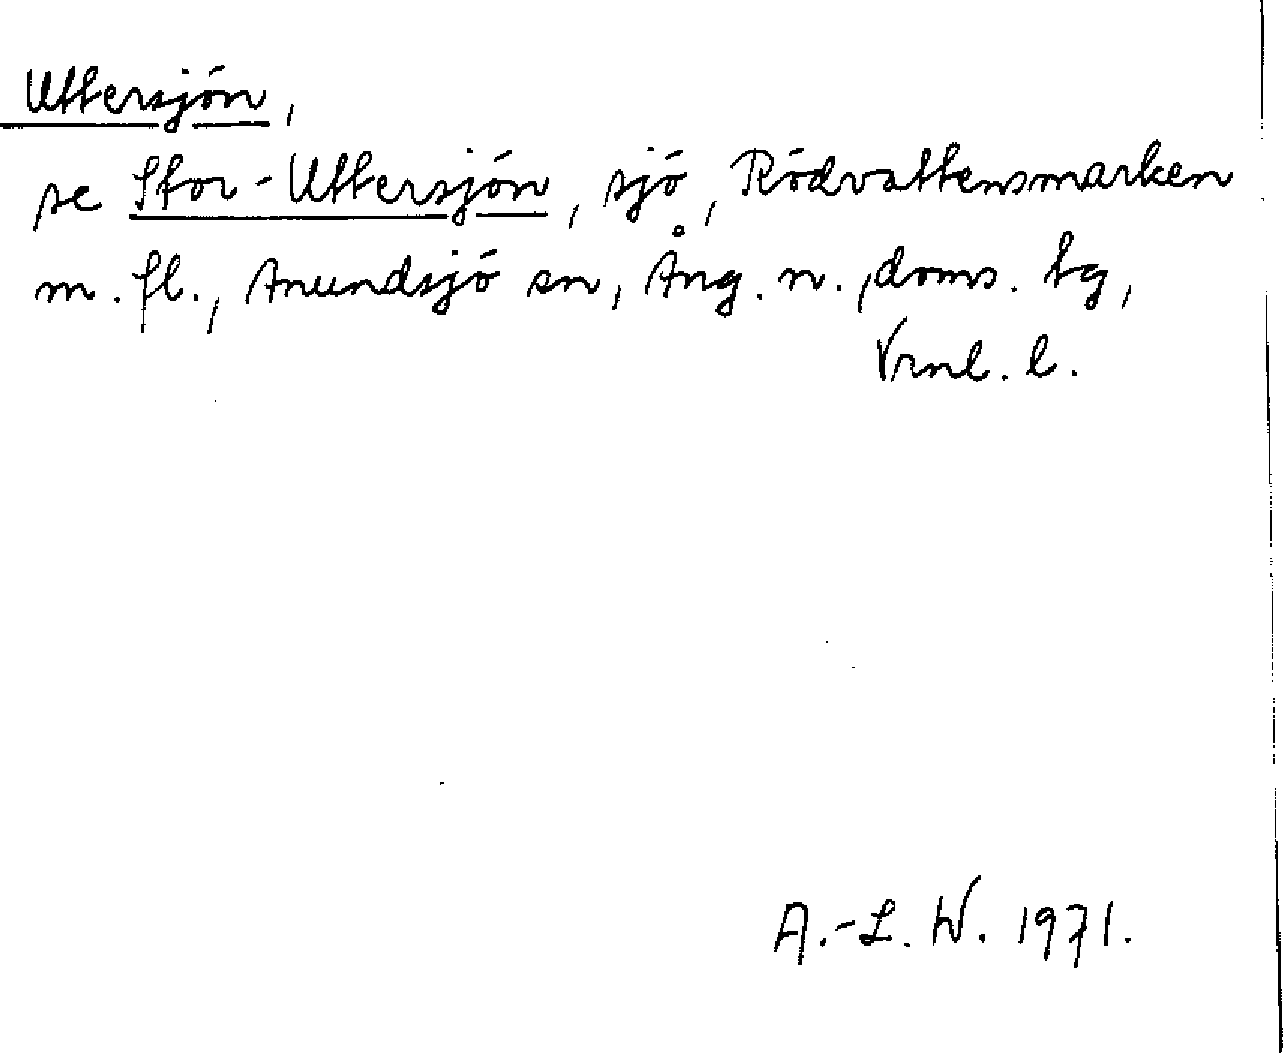 Uttersjön,
se Stor-Uttersjön, sjö, Rödvattensmarken
m. fl., Anundsjö sn, Ång. n., doms. tg,
Vrnl. l.
A.-L. W. 1971.